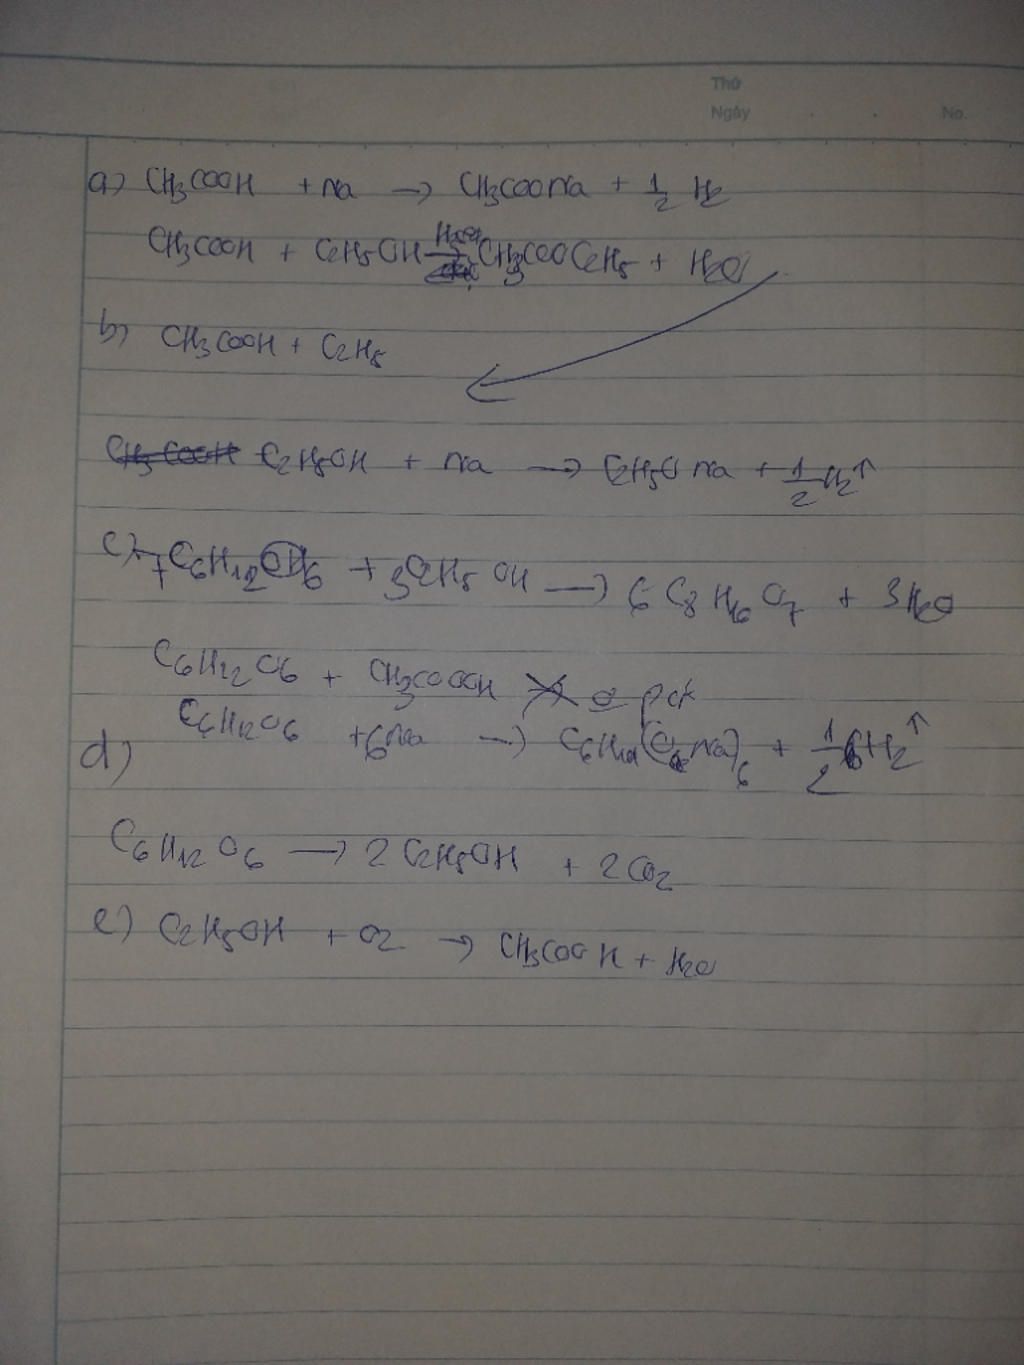 Thứ
Ngày No.
a) CH3COOH + Na → CH3COONa + 1/2 H2
CH3COOH + C2H5OH → CH3COOC2H5 + H2O
b) CH3COOH + C2H5
CH3COOH C2H5OH + Na → C2H5ONa + 1/2 H2↑
c) 7C6H12O6 + 3C2H5OH → 6C8H16O7 + 3H2O
C6H12O6 + CH3COOOH ko pứ
C6H12O6 + 6Na → (Na)6 + 1/2 6H2↑
d)
C6H12O6 → 2C2H5OH + 2CO2
e) C2H5OH + O2 → CH3COOH + H2O